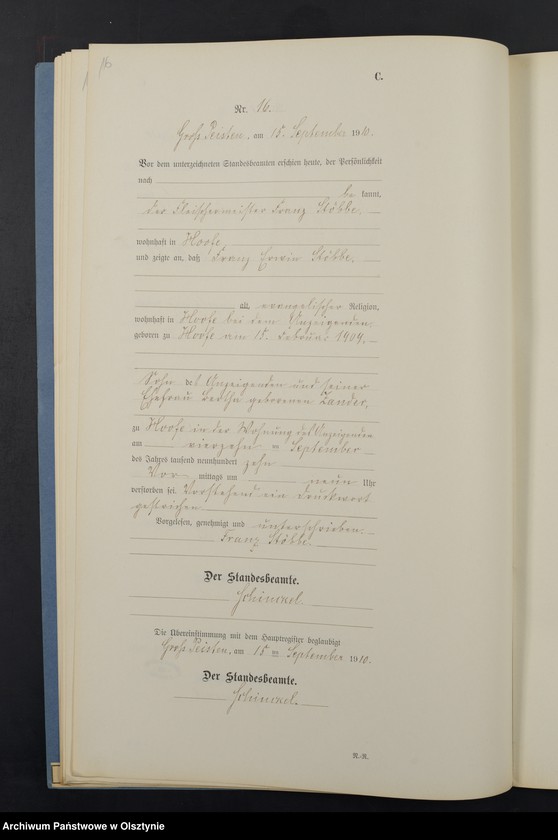 16
C.
Nr. 16.
Groß Peisten, am 15. September 1910.
Vor dem unterzeichneten Standesbeamten erschien heute, der Persönlichkeit
nach
be kannt,
der Fleischermeister Franz Stöbbe,
wohnhaft in Hoofe
und zeigte an, daß Franz Erwin Stöbbe,
alt, evangelischer Religion,
wohnhaft in Hoofe bei dem Anzeigenden
geboren zu Hoofe am 15. Februar 1909,
Sohn des Anzeigenden und seiner
Ehefrau Bertha geborenen Zander,
zu Hoofe in der Wohnung des Anzeigenden
am vierzehn ten September
des Jahres tausend neunhundert zehn
Vor mittags um neun Uhr
verstorben sei. Vorstehend ein Druckwort
gestrichen
Vorgelesen, genehmigt und unterschrieben
Franz Stöbbe.
Der Standesbeamte.
Schinckel.
Die Übereinstimmung mit dem Hauptregister beglaubigt
Groß Peisten, am 15 ten September 1910.
Der Standesbeamte.
Schinckel.
N.-R.
Archiwum Państwowe w Olsztynie